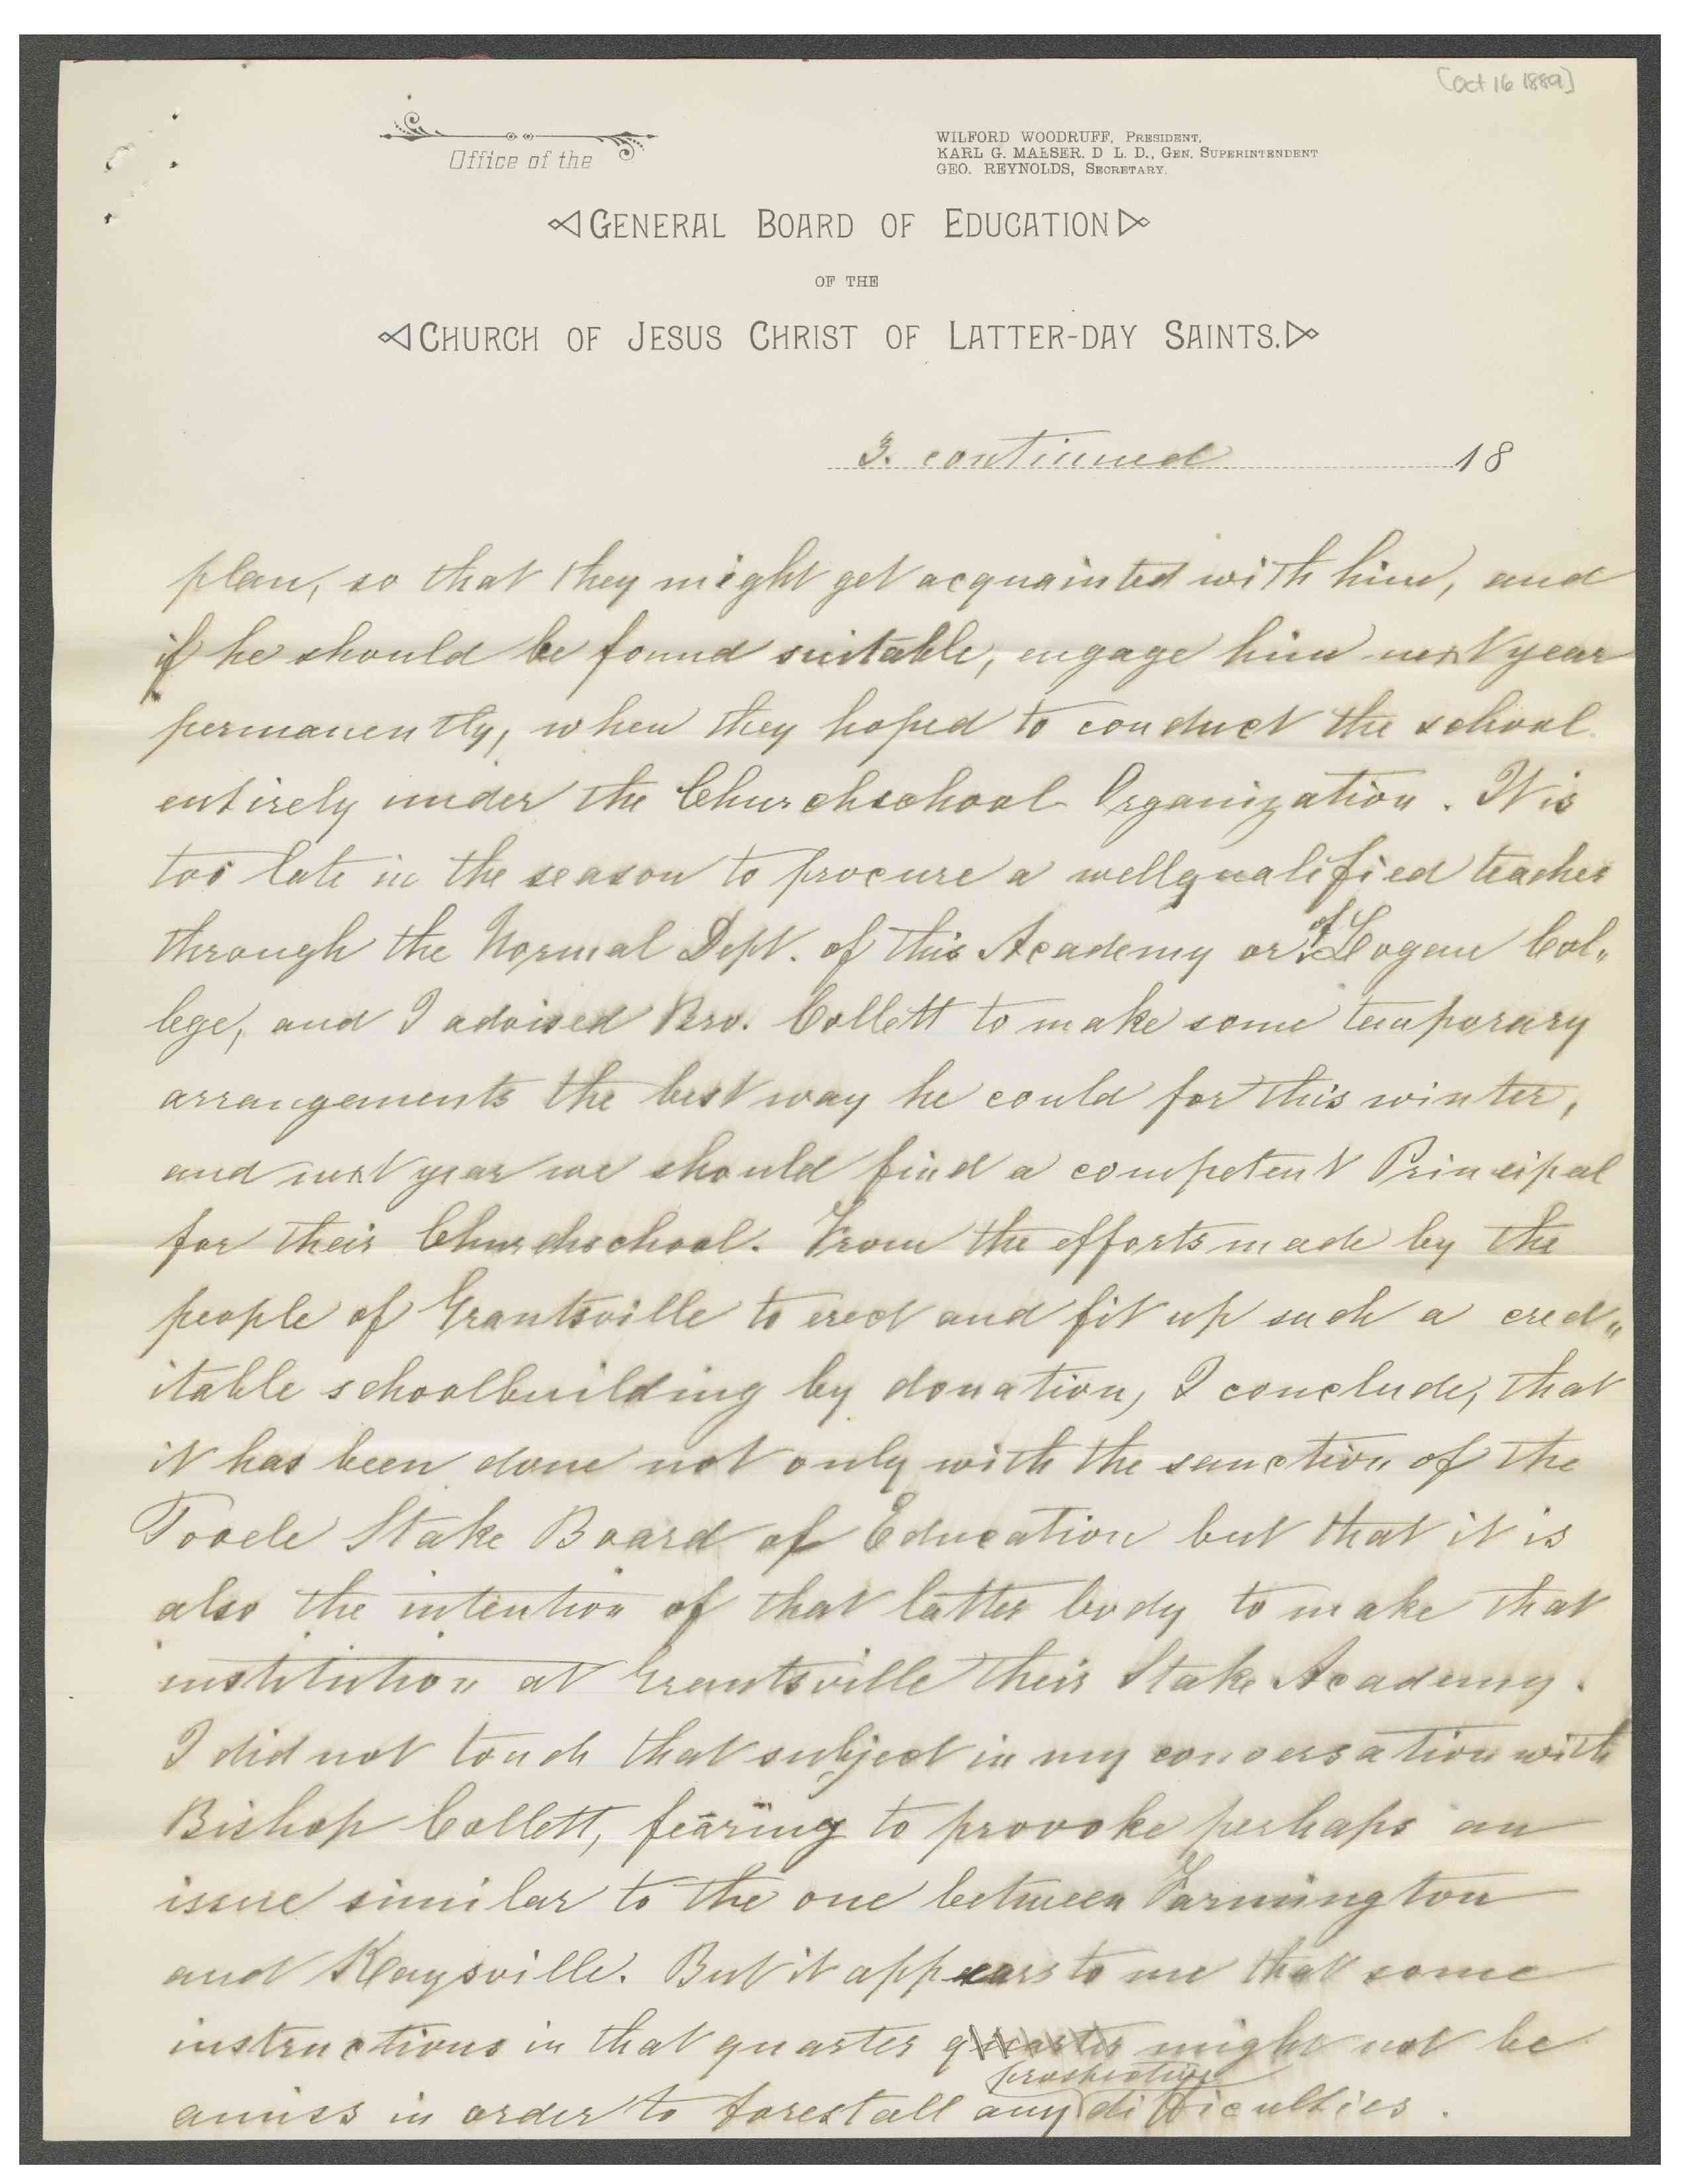 [Oct 16 1889]
Office of the
WILFORD WOODRUFF, PRESIDENT,
KARL G. MAESER. D L. D., GEN. SUPERINTENDENT
GEO. REYNOLDS, SECRETARY.
GENERAL BOARD OF EDUCATION
OF THE
CHURCH OF JESUS CHRIST OF LATTER-DAY SAINTS.
3. continued 18
plan, so that they might get acquainted with him, and
if he should be found suitable, engage him next year
permanently, when they hoped to conduct the school
entirely under the Churchschool Organization. It is
too late in the season to procure a wellqualified teacher
through the Normal Dept. of this Academy or of Logan Col„
lege, and I advised Bro. Collett to make some temporary
arrangements the best way he could for this winter,
and next year we should find a competent Principal
for their Churchschool. From the efforts made by the
people of Grantsville to erect and fit up such a cred„
itable schoolbuilding by donation, I conclude, that
it has been done not only with the sanction of the
Tooele Stake Board of Education but that it is
also the intention of that latter body to make that
institution at Grantsville their Stake Academy.
I did not touch that subject in my conversation with
Bishop Collett, fearing to provoke perhaps an
issue similar to the one between Farmington
and Kaysville. But it appears to me that some
instructions in that quarter quarter might not be
amiss in order to forestall any prospective difficulties.